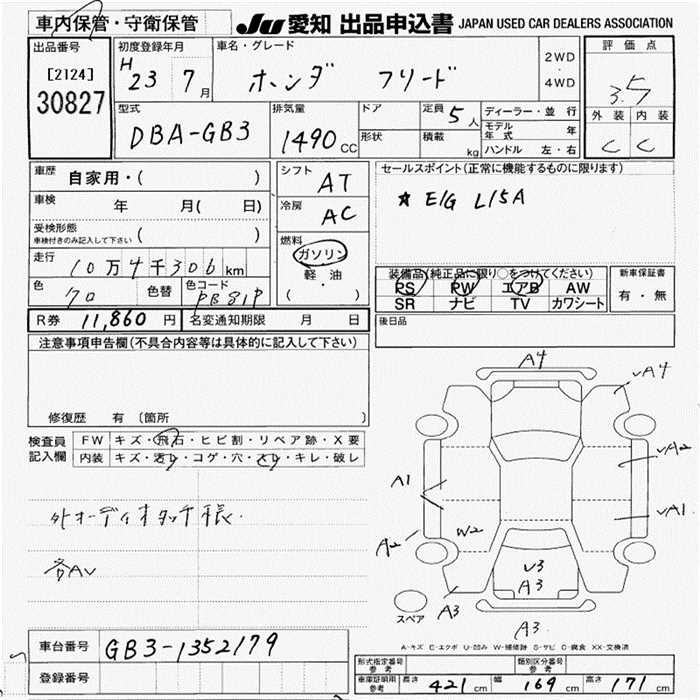 車内保管・守衛保管
JU 愛知 出品申込書 JAPAN USED CAR DEALERS ASSOCIATION
出品番号
[2124]
30827
初度登録年月
H 23 7月
車名・グレード
ホンダ フリード
2WD
・
4WD
評価点
3.5
外装 内装
C C
型式
DBA-GB3
排気量
1490 CC
ドア
形状
定員 5人
積載 kg
ディーラー・並行
モデル年式 年
ハンドル 左・右
車歴 自家用・( )
車検 年 月( 日)
受検形態
車検付きのみ記入して下さい ( )
走行 10万4千306km
色 色替 色コード
PB81P
シフト AT
冷房 AC
燃料
ガソリン
軽・油
( )
セールスポイント(正常に機能するものに限ります)
☆ E/G L15A
装備品(純正品に限り○をつけてください)
PS PW エアB AW
SR ナビ TV カワシート
新車保証書
有・無
R券 11,860 円 名変通知期限 月 日
後日品
注意事項申告欄(不具合内容等は具体的に記入して下さい)
修復歴 有(箇所 )
検査員記入欄
FW キズ・飛石・ヒビ割・リペア跡・X要
内装 キズ・汚レ・コゲ・穴・スレ・キレ・破レ
外オーディオタッチ痕.
各AV
A4
vA4
A1
vA2
vA1
A2
W2
v3
A3
A3
A3
スペア
A-キズ E-エクボ U-凹み W-補修跡 S-サビ C-腐食 XX-交換済
車台番号 GB3-1352179
登録番号
形式指定番号 参考
類別区分番号 参考
車庫証明用 参考 長さ 421cm 幅 169cm 高さ 171cm